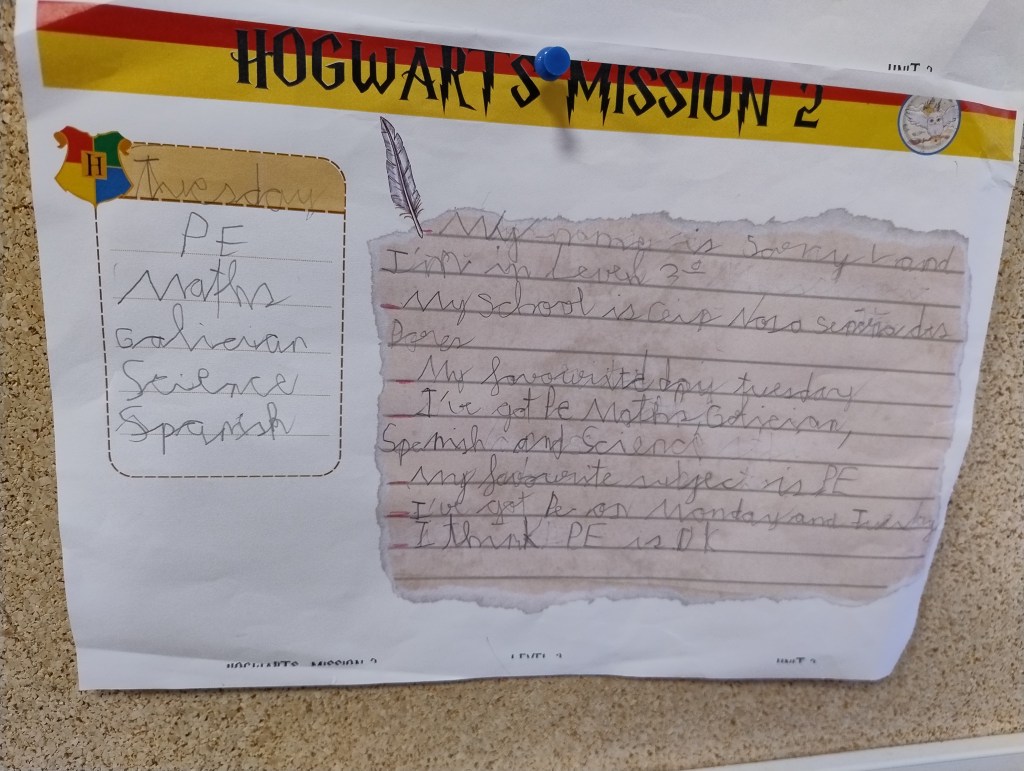 UNIT 2
HOGWARTS MISSION 2
H
Tuesday
PE
Maths
Galician
Science
Spanish
My name is and
I'm in Level 3º
My School is Ceip Nosa dis
Dores
My favourite day tuesday
I've got Pe Maths, Galician,
Spanish and Science
my favourite subject is PE
I've got Pe on Monday and Tuesday
I think PE is OK
HOGWARTS MISSION 2
LEVEL 3
UNIT 2